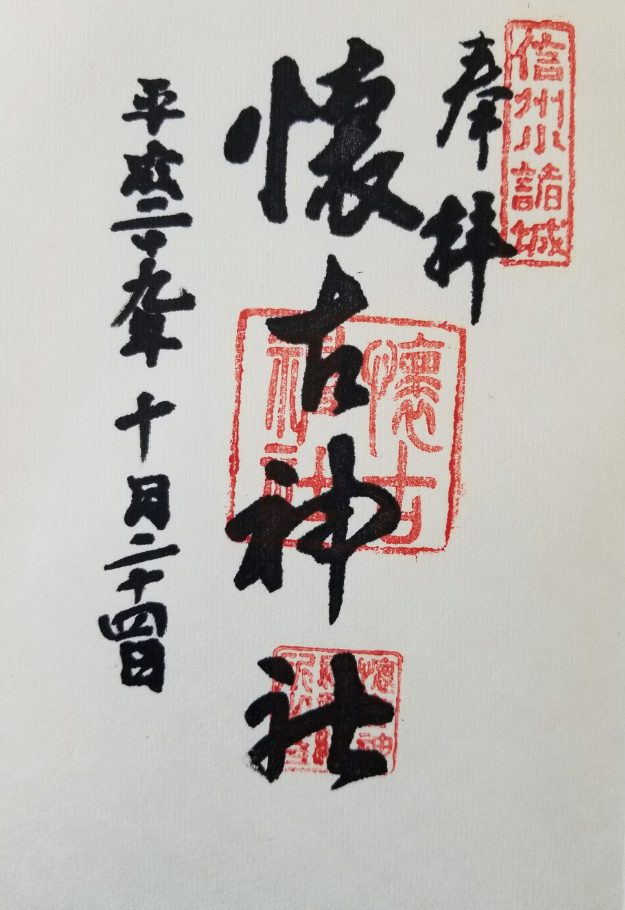 信州小諸城
奉拝
懐古神社
懐古
神社
平成二十九年十月二十四日